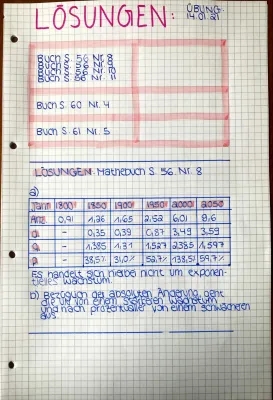 LÖSUNGEN:
ÜBUNG
14.01.21
Buch S. 56 Nr. 8
Buch S. 56 Nr. 9
Buch S. 56 Nr. 10
Buch S. 56 Nr. 11
Buch S. 60 Nr. 4
Buch S. 61 Nr. 5
LÖSUNGEN: Mathebuch S. 56 Nr. 8
a)
Jahr 1800 1850 1900 1950 2000 2050
0,91 1,26 1,65 2,52 6,01 9,6
- 0,35 0,39 0,87 3,49 3,59
- 1,385 1,31 1,527 2,385 1,597
p - 38,5% 31,0% 52,7% 138,5% 59,7%
Es handelt sich hierbei nicht um exponen-
tielles Wachstum.
b) Bezüglich der absoluten Änderung geht
die UN von einem stärkeren Wachstum
und nach prozentualer von einem schwächeren
aus.